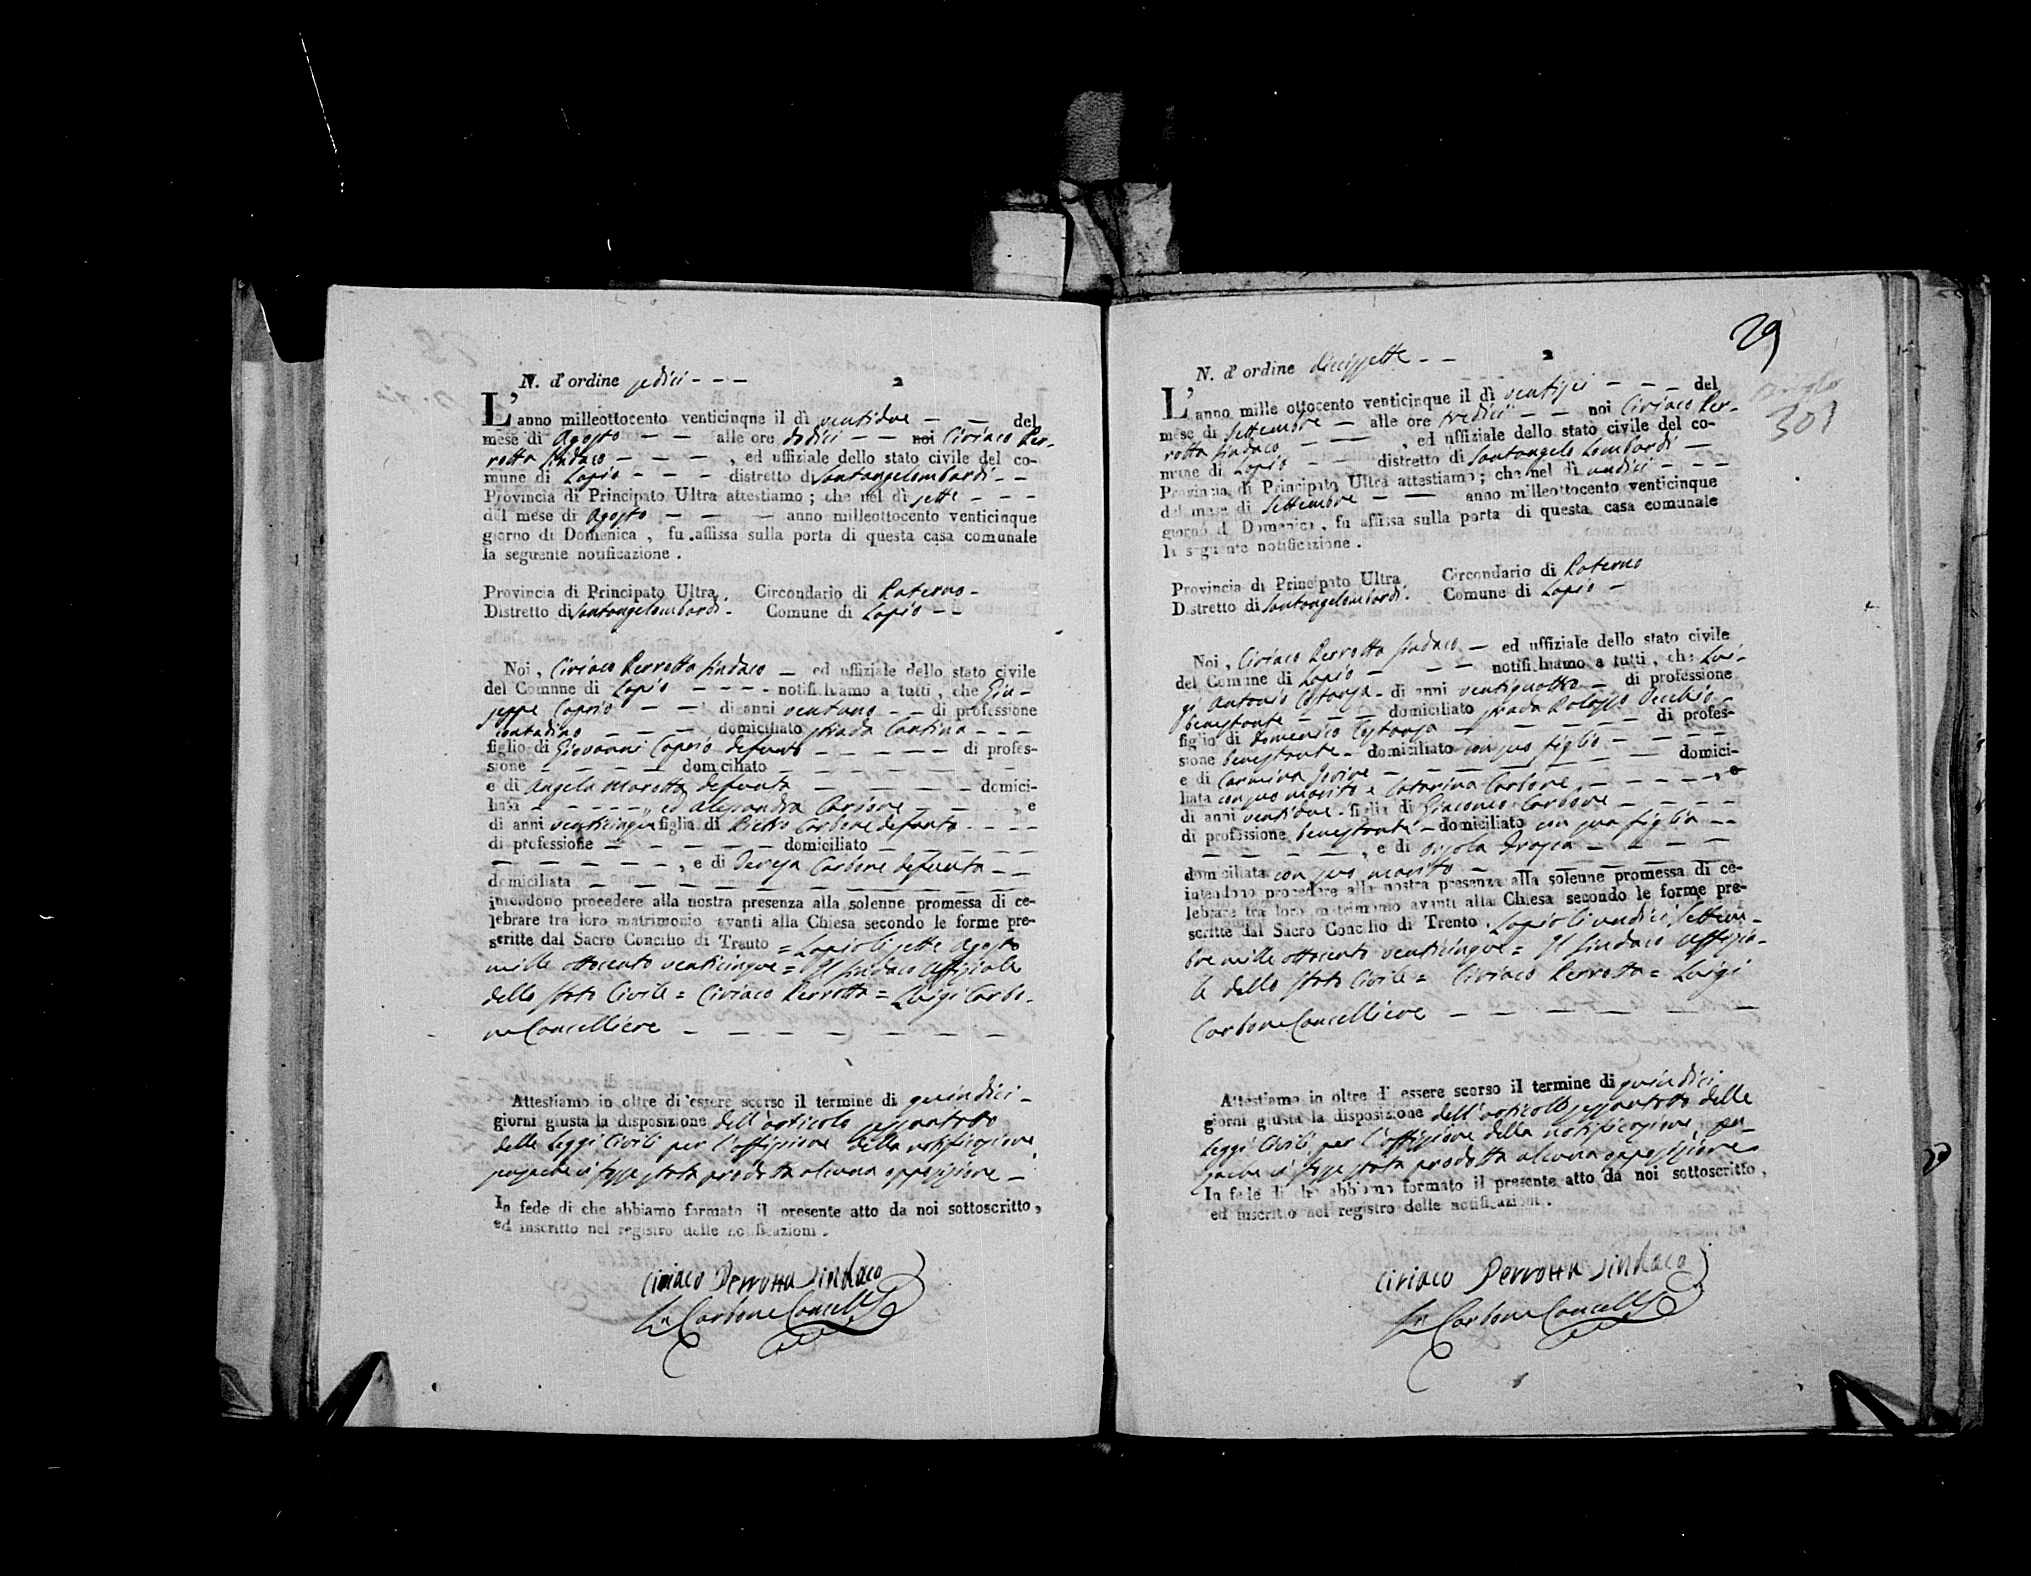 N. d'ordine sedici - - - 2
L'anno milleottocento venticinque il dì ventidue — — del
mese di Agosto — — alle ore dodici — — noi Ciriaco Per-
rotta Sindaco — — — , ed uffiziale dello stato civile del co-
mune di Lapio — — — distretto di Santangelombardi - -
Provincia di Principato Ultra attestiamo ; che nel dì sette — — —
del mese di Agosto — — — anno milleottocento venticinque
giorno di Domenica , fu affissa sulla porta di questa casa comunale
la seguente notificazione .
Provincia di Principato Ultra. Circondario di Paterno -
Distretto di Santangelombardi. Comune di Lapio - -
Noi , Ciriaco Perrotta Sindaco — ed uffiziale dello stato civile
del Comune di Lapio - - - - notifichiamo a tutti , che Giu-
seppe Caprio — — di anni ventuno - - di professione
contadino — — — domiciliato strada Cantina - - -
figlio di Giovanni Caprio defunto - - - - - di profes-
sione - - - - domiciliato — — — — — —
e di Angela Marotta defunta — — — — — domici-
liata - - - - - , ed Alesandra Carbone — — , e
di anni venticinque figlia di Pietro Carbone defunto - - - -
di professione — — — — — domiciliato — — — — —
— — — — — , e di Teresa Carbone defunta — —
domiciliata — — — — — — — — —
intendono procedere alla nostra presenza alla solenne promessa di ce-
lebrare tra loro matrimonio avanti alla Chiesa secondo le forme pre-
scritte dal Sacro Concilio di Trento = Lapio li sette Agosto
mille ottocento venticinque = Il Sindaco Uffiziale
dello stato Civile = Ciriaco Perrotta = Luigi Carbo-
ne Cancelliere — — — — — — — —
Attestiamo in oltre di essere scorso il termine di quindici -
giorni giusta la disposizione dell'articolo sessantotto
delle Leggi Civili per l'affissione della notificazione
senzache ci fosse stata prodotta alcuna opposizione —
In fede di che abbiamo formato il presente atto da noi sottoscritto,
ed inscritto nel registro delle notificazioni .
Ciriaco Perrotta Sindaco
Carbone Cancell
29
301
N. d'ordine diecissette - - 2
L'anno mille ottocento venticinque il dì ventisei — — — del
mese di Settembre — alle ore tredici — — noi Ciriaco Per-
rotta Sindaco — — — , ed uffiziale dello stato civile del co-
mune di Lapio — — distretto di Santangelo Lombardi —
Provincia di Principato Ultra attestiamo ; che nel dì undici - - -
del mese di Settembre — — anno milleottocento venticinque
giorno di Domenica , fu affissa sulla porta di questa casa comunale
la seguente notificazione .
Provincia di Principato Ultra Circondario di Paterno
Distretto di Santangelombardi. Comune di Lapio —
Noi , Ciriaco Perrotta Sindaco — ed uffiziale dello stato civile
del Comune di Lapio — — — — notifichiamo a tutti , che Lui-
gi Antonio - di anni ventiquattro — di professione
benestante — — — domiciliato strada Palazzo Vecchio -
figlio di Domenico — — — — — di profes-
sione benestante - domiciliato con suo figlio — — — —
e di Carmina — — — — — — — domici-
liata con suo marito e Catarina Carbone - - - - - , e
di anni ventidue - figlia di Giacomo Carbone — — — —
di professione benestante - domiciliato con sua figlia - -
— — — — — , e di Orsola — — — —
domiciliata con suo marito — — — — —
intendono procedere alla nostra presenza alla solenne promessa di ce-
lebrare tra loro matrimonio avanti alla Chiesa secondo le forme pre-
scritte dal Sacro Concilio di Trento . Lapio li undici Settem-
bre mille ottocento venticinque = Il Sindaco Uffizia-
le dello stato Civile = Ciriaco Perrotta = Luigi
Carbone Cancelliere — — — — — —
Attestiamo in oltre di essere scorso il termine di quindici
giorni giusta la disposizione dell'articolo sessantotto delle
Leggi Civili per l'affissione della notificazione sen-
zache ci fosse stata prodotta alcuna opposizione
In fede di che abbiamo formato il presente atto da noi sottoscritto ,
ed inscritto nel registro delle notificazioni .
Ciriaco Perrotta Sindaco
Carbone Cancell